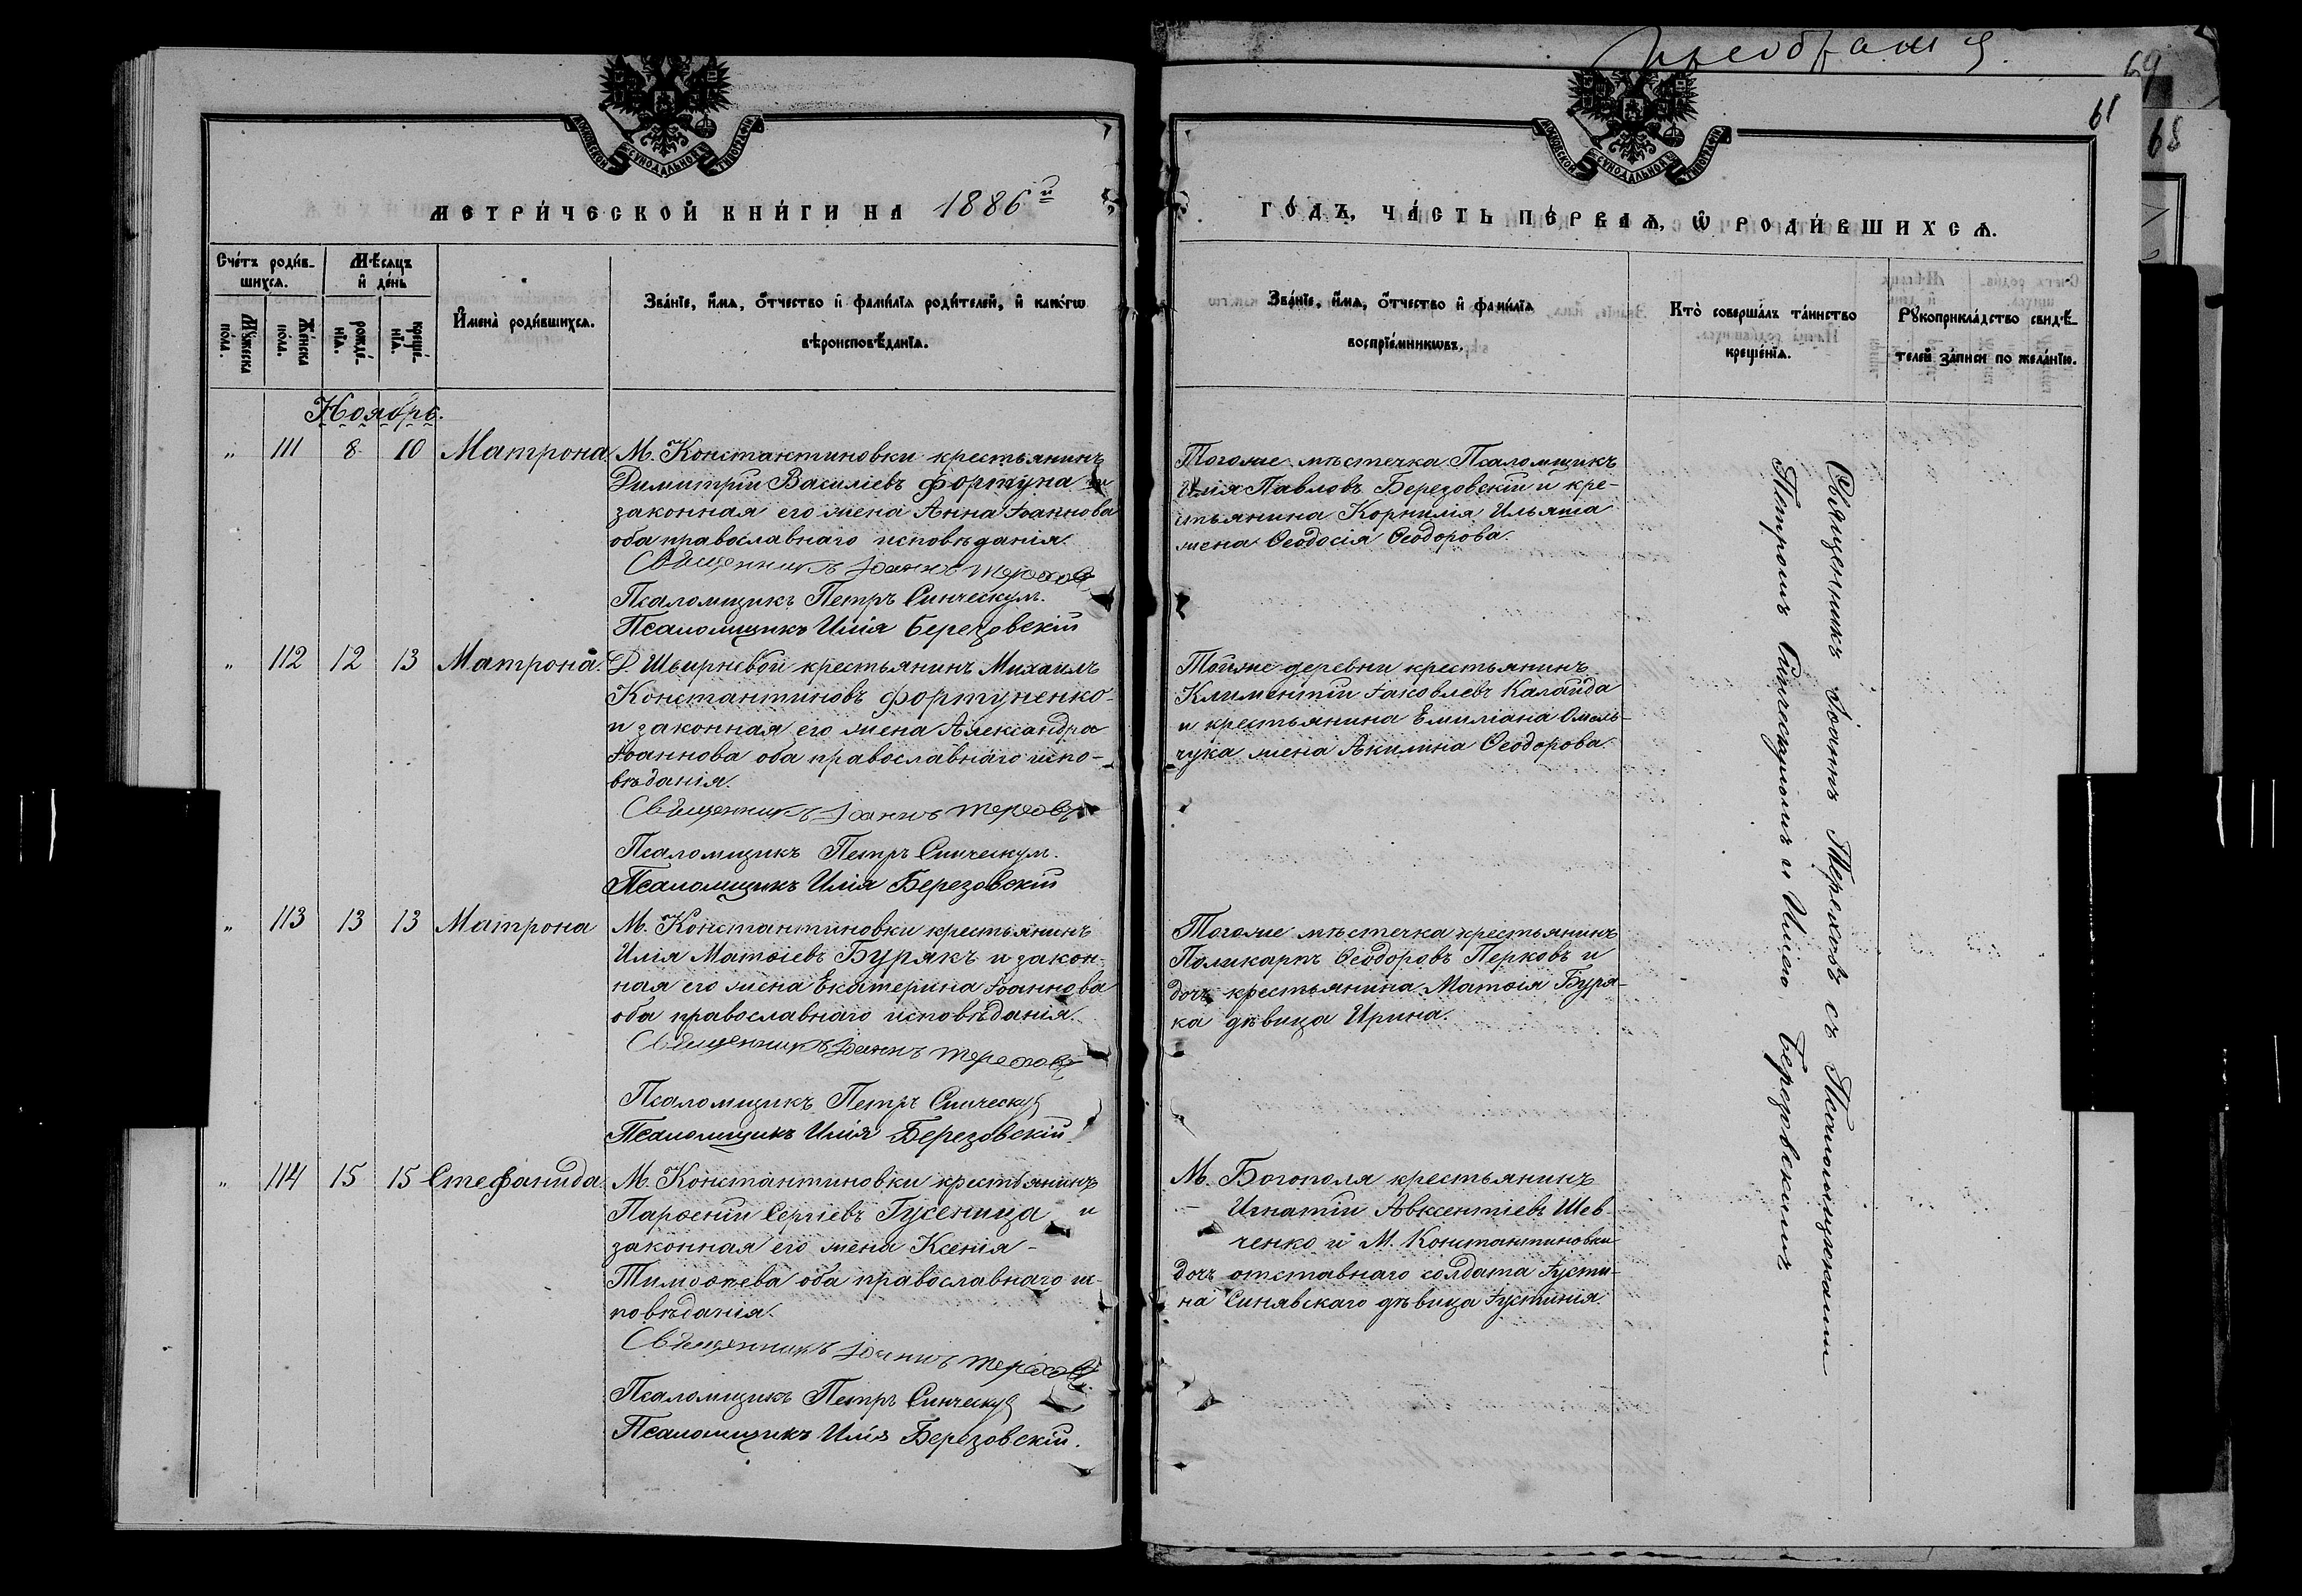 Преображ
69
61
68
МОСКОВСКОЙ СѴНОДАЛЬНОЙ ТИПОГРАФІИ
МОСКОВСКОЙ СѴНОДАЛЬНОЙ ТИПОГРАФІИ
МЕТРИ́ЧЕСКОЙ КНИ́ГИ НА 1886й
ГО́ДЪ, ЧА́СТЬ ПЕ́РВАѦ, Ѡ҆ РОДИ́ВШИХСѦ.
Сче́тъ роди́в-
шихсѧ.
Мѣ́сѧцъ
и҆ де́нь
Мꙋ́жеска
по́ла.
Же́нска
по́ла.
рожде́-
нїѧ.
креще́-
нїѧ.
И҆мена̀ роди́вшихсѧ.
Зва́нїе, и҆́мѧ, ѻ҆́тчество и҆ фами́лїѧ роди́телей, и҆ како́гѡ
вѣроисповѣ́данїѧ.
Зва́нїе, и҆́мѧ, ѻ҆́тчество и҆ фами́лїѧ
воспрїе́мникѡвъ.
Кто̀ соверша́лъ та́инство
креще́нїѧ.
Рꙋкоприкла́дство свидѣ́-
телей за́писи по жела́нїю.
Ноябрь.
" 111 8 10 Матрона
М. Константиновки крестьянинъ
Димитрій Василіевъ Фортуна и
законная его жена Анна Іоаннова
оба православнаго исповѣданія.
Священникъ Іоаннъ Тереховъ
Псаломщикъ Петръ Синческул.
Псаломщикъ Илія Березовскій
Тогоже мѣстечка Псаломщикъ
Илія Павловъ Березовскій и кре-
стьянина Корнилія Ильяша
жена Ѳеодосія Ѳеодорова.
" 112 12 13 Матрона.
Д. Швырневой крестьянинъ Михаилъ
Константиновъ Фортуненко
и законная его жена Александра
Іоаннова оба православнаго испо-
вѣданія.
Священникъ Іоаннъ Тереховъ
Псаломщикъ Петръ Синческул.
Псаломщикъ Илія Березовскій
Тойже деревни крестьянинъ
Климентій Іаковлевъ Калайда
и крестьянина Емиліана Омель-
чука жена Акилина Ѳеодорова.
" 113 13 13 Матрона
М. Константиновки крестьянинъ
Илія Матѳіевъ Бурякъ и закон-
ная его жена Екатерина Іоаннова
оба православнаго исповѣданія.
Священникъ Іоаннъ Тереховъ
Псаломщикъ Петръ Синческул
Псаломщикъ Илія Березовскій.
Тогоже мѣстечка крестьянинъ
Поликарпъ Ѳеодоровъ Перковъ и
дочь крестьянина Матѳія Буря-
ка дѣвица Ирина.
" 114 15 15 Стефанида.
М. Константиновки крестьянинъ
Парѳеній Сергіевъ Гусеница и
законная его жена Ксенія -
Тимоѳеева оба православнаго ис-
повѣданія.
Священникъ Іоаннъ Тереховъ
Псаломщикъ Петръ Синческул
Псаломщикъ Илія Березовскій.
М. Богополя крестьянинъ
Игнатій Авксентіевъ Шев-
ченко и М. Константиновки
дочь отставнаго солдата Іусти-
на Синявскаго дѣвица Іустинія.
Священникъ Іоаннъ Тереховъ съ Псаломщиками
Петромъ Синческуломъ и Иліею Березовскимъ